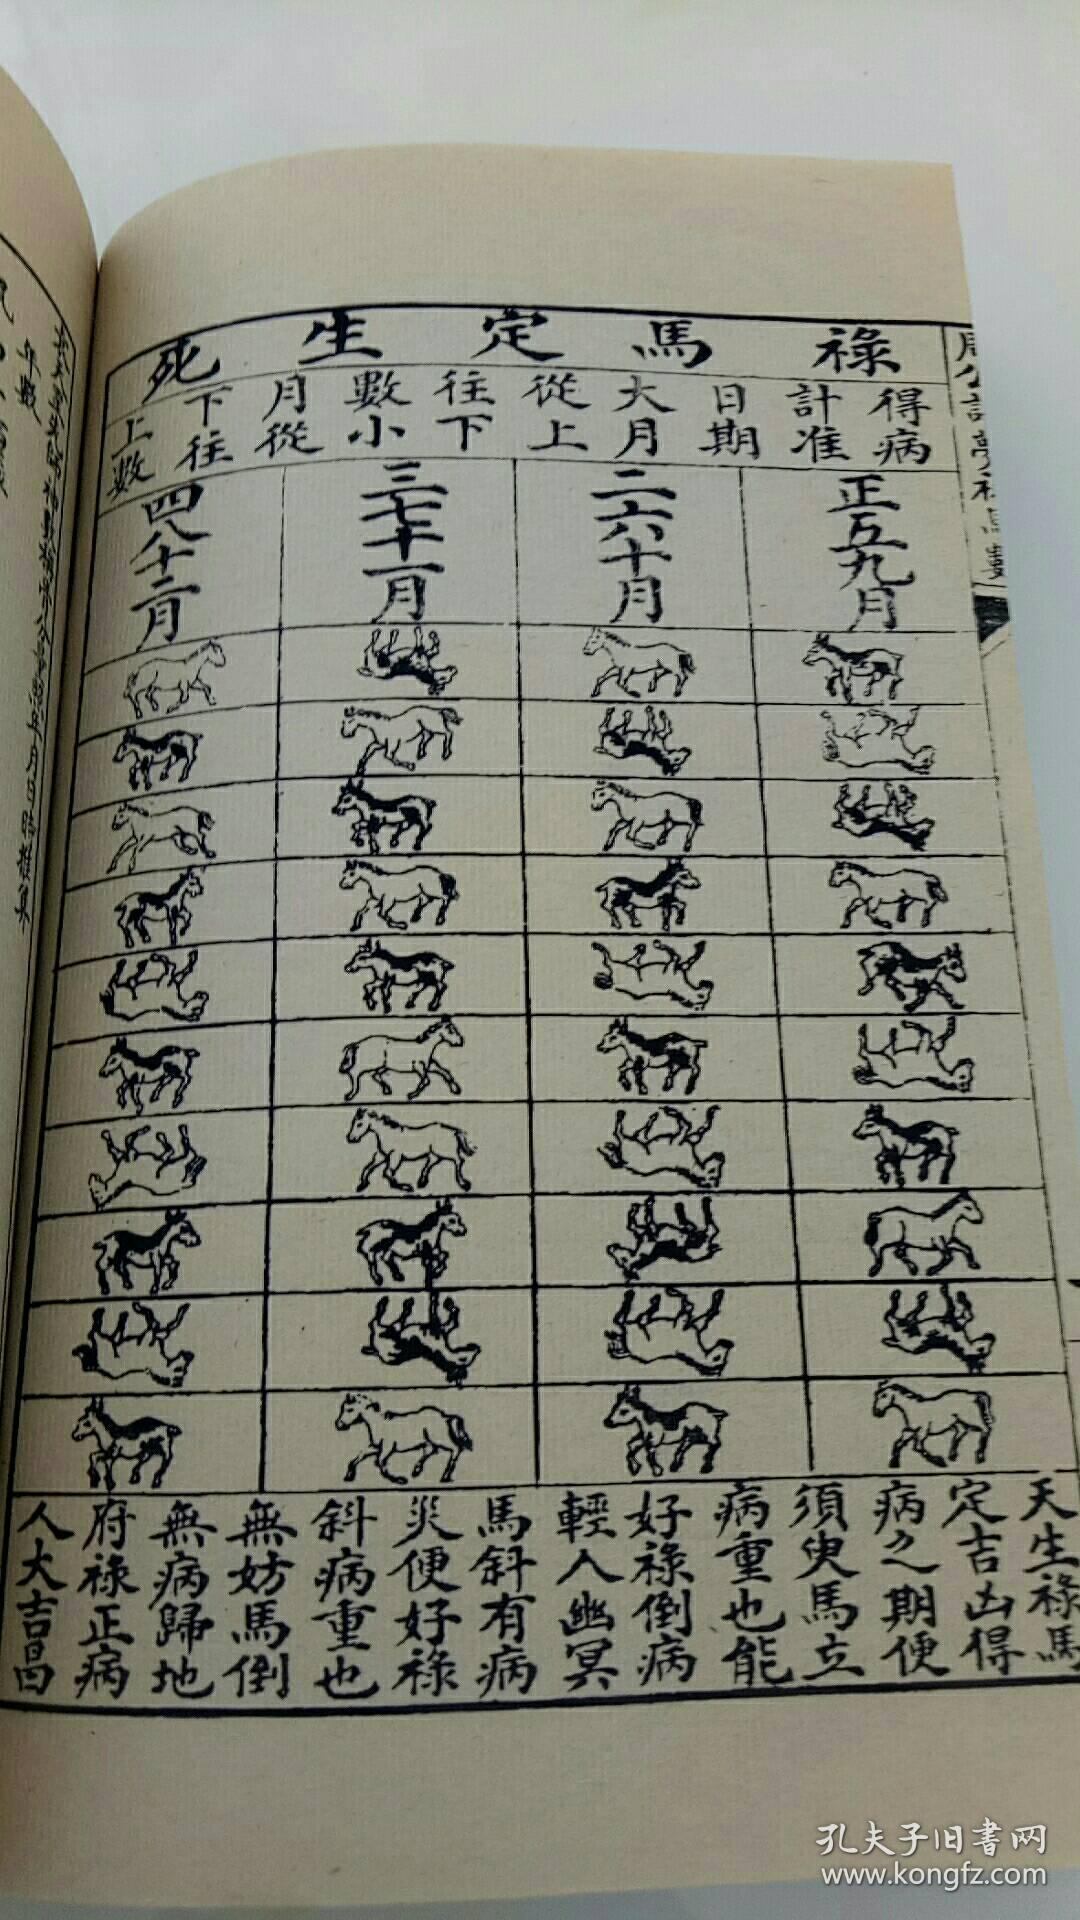 祿馬定生死
得病
計准
日期
大月
從上
往下
數小
月從
下往
上數
正五九月
二六十月
三七十一月
四八十二月
天生祿馬
定吉凶得
病之期便
須臾馬立
病重也能
好祿倒病
輕入幽冥
馬斜有病
災便好祿
斜病重也
無妨馬倒
無病歸地
府祿正病
人大吉昌
年數
孔夫子旧書网
www.kongfz.com